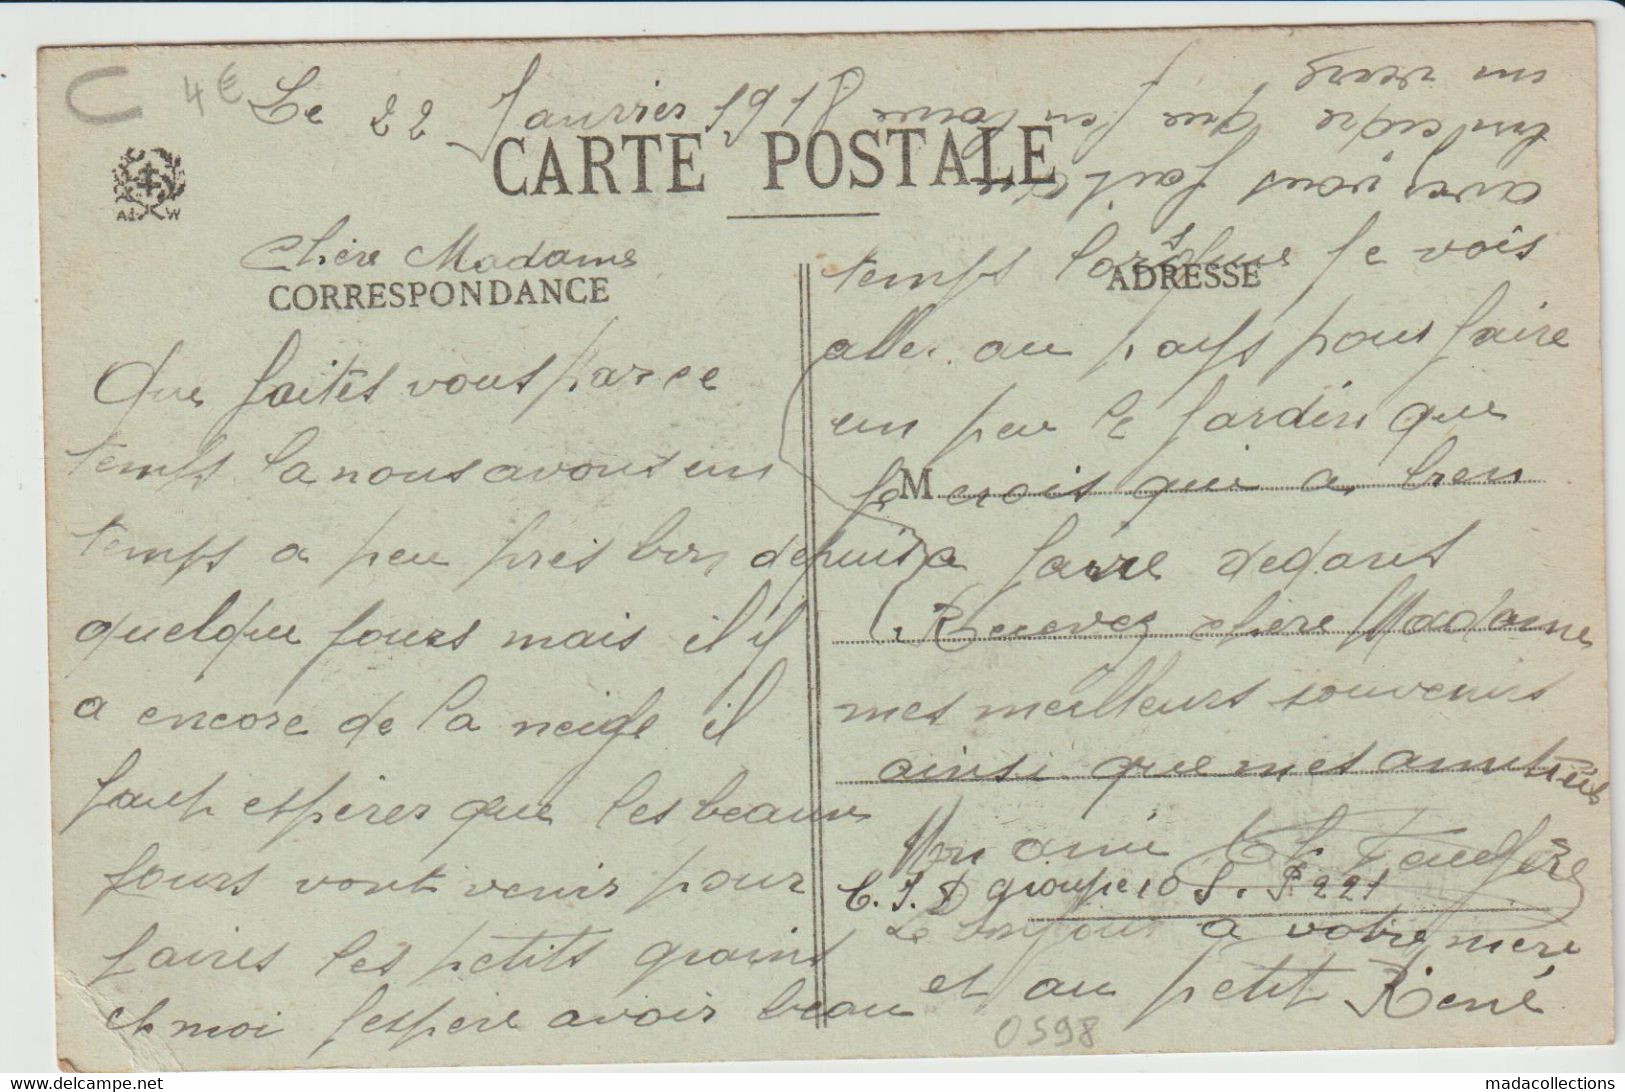 4€
Le 22 Janvier 1918
CARTE POSTALE
A. W
Chère Madame
CORRESPONDANCE
Que faites vous par ce
temps la nous avons un
temps a peu pres bon depuis
quelque jours mais il y
a encore de la neige il
faut espérer que les beaux
jours vont venir pour
faires les petits grains
et moi jespere avoir beau
temps lorsque je vois
ADRESSE
aller au pays pour faire
un peu le jardin que
je crois qui a bien
M
a faire dedans
Recevez chère Madame
mes meilleurs souvenirs
ainsi que mes amitiés
Mon ami
C. I. D groupe 10 S. P 221
Le bonjour a votre mere
et au petit René
avez vous fait du
bon cidre que j'en boive
un verre
0598
madacollections